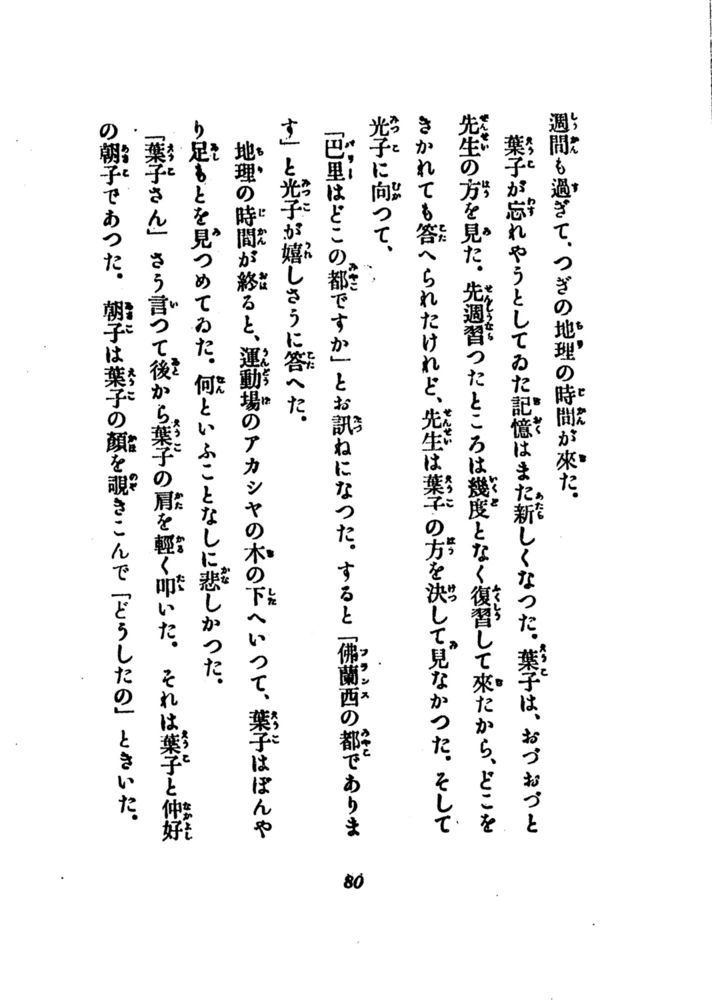 週間も過ぎて、つぎの地理の時間が來た。
葉子が忘れやうとしてゐた記憶はまた新しくなつた。葉子は、おづおづと
先生の方を見た。先週習つたところは幾度となく復習して來たから、どこを
きかれても答へられたけれど、先生は葉子の方を決して見なかつた。そして
光子に向つて、
「巴里はどこの都ですか」とお訊ねになつた。すると「佛蘭西の都でありま
す」と光子が嬉しさうに答へた。
地理の時間が終ると、運動場のアカシヤの木の下へいつて、葉子はぼんや
り足もとを見つめてゐた。何といふことなしに悲しかつた。
「葉子さん」さう言つて後から葉子の肩を輕く叩いた。それは葉子と仲好
の朝子であつた。朝子は葉子の顏を覗きこんで「どうしたの」ときいた。
80